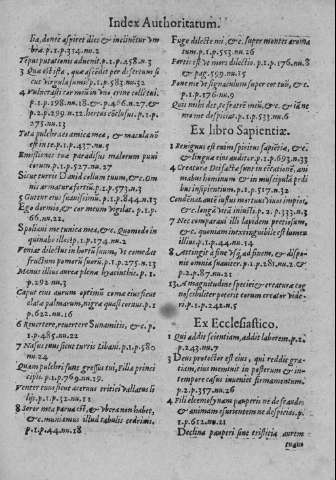 Index Authoritatum.
lia, donec aspiret dies & inclinetur vm
bræ. p.1.p.314.nu.2
Tẽpus putationis aduenit. p.1.p.458.n.3
3 Quæ est ista, quæ ascẽdit per desertum si
cut virgula fumi. p.1.p.583.nu.32
4 Vulnerasti cor meũ in vno crine colli tui.
p.1.p.198.nu.18. & p.406.n.27. &
p.2.p.299.n.12. hortus cõclusus. p.1.p.
275.nu.13
Tota pulchra es amica mea, & macula nõ
est in te. p.1.p.437.nu.5
Emissiones tuæ paradisus malorum puni
corum. p.1.p.527.nu.27
Sicut turris Dauid collum tuum, &c. Om
nis armatura fortiũ. p.1.p.573.n.3
5 Guttur eius suauissimũ. p.1.p.844.n.13
Ego dormio, & cor meum vigilat. p.1.p.
66.nu.22.
Spoliaui me tunica mea, &c. Quomodo in
quinabo illos? p.1.p.174.nu.2
Veniat dilectus in hortũ suum, vt comedat
fructum pomorũ suorũ. p.1.p.275.n.13
Manus illius aurea plenæ hyacinthis. p.1.
p.292.nu.3
Caput eius aurum optimũ comæ eius sicut
elatæ palmarum, nigræ quasi coruus. p.1
p.622.nu.16
6 Reuertere, reuertere Sunamitis, &c. p.
1.p.485.nu.22
7 Nasus tuus sicut turris Libani. p.1.p.580
nu.24
Quam pulchri sunt gressus tui, Filia princi
cipis. p.1.p.769.nu.19.
Venter tuus sicut aceruus tritici vallatus li
lijs. p.1.p.32.nu.11
8 Soror mea parua est, & vbera non habet,
&c. muniamus illud tabulis cedrinis.
p.1.p.44.nu.18
Fuge dilecte mi, &c. super montes aroma
tum. p.1.p.553.nu.26
Fortis est vt mors dilectio. p.1.p.176.nu.8
& pag.599.nu.15
Pone me vt signaculum super cor tuũ, & c.
p.1.p.176.nu.9
Quis mihi det, te fratrẽ meũ, &c. & iã ne
mo me despiciat. p.1.p.533.nu.6
Ex libro Sapientiæ.
1 Benignus est enim spiritus sapiẽtiæ, &c.
& lingua eius auditor. p.1.p.693.n.33
4 Creaturæ Dei factæ sunt in odium, & in
tentationem, animabus hominum & in muscipulã pedi
bus insipientium. p.1.p.517.n.32
Condemnat autẽ iustus mortuus viuos impios,
&c. longã vitã iniusti. p.2.p.333.n.3
7 Nec comparaui illi lapidem pretiosum,
&c. quoniam inextinguibile est lumen
illius. p.1.p.44.nu.14
8 Attingit à fine vsq; ad finem, & dispo-
nit omnia suauiter. p.1.p.281.nu.2. &
p.2.p.87.nu.21
13 A magnitudine speciei & creaturæ cog
noscibiliter poterit eorum creator vide-
ri. p.1.p.241.nu.5.
Ex Ecclesiastico.
1 Qui addit scientiam, addit laborem. p.2.
p.243.nu.7
3 Deus protector est eius, qui reddit gratiam,
eius meminit in posterum & in
tempore casus inueniet firmamentum.
p.2.p.357.nu.26
4 Fili eleemosynam pauperi ne defraudes
& animam esurientem ne despicias. p.1.
p.612.nu.21
Declina pauperi sine tristitia aurem
tuam